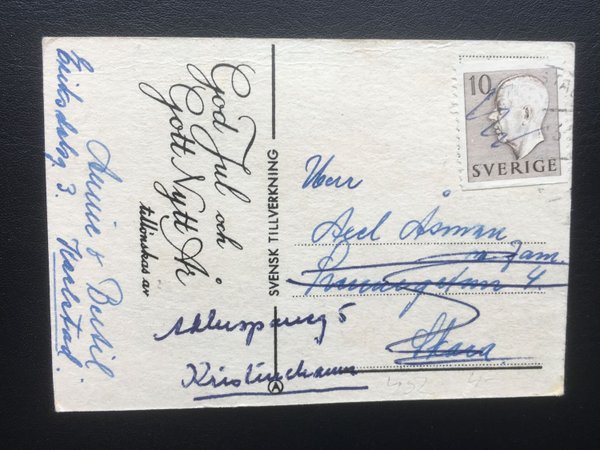 God Jul och
Gott Nytt År
tillönskas av
Annie & Bertil
Eriksdalsg 3. Karlstad.
SVENSK TILLVERKNING
A
10
SVERIGE
Herr
Axel Åsman
m. Fam.
4.
Skara
5
Kristinehamn